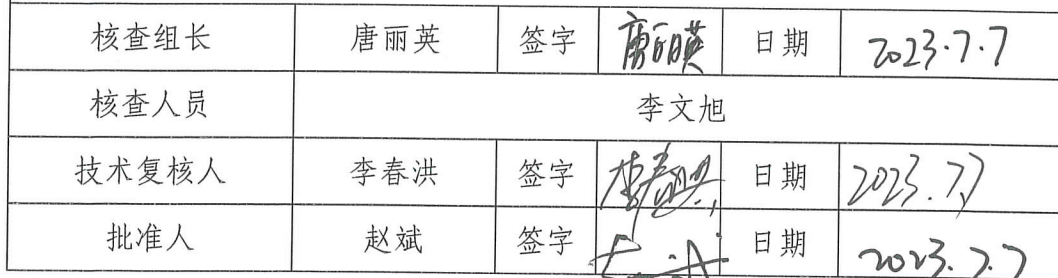 核查组长 唐丽英 签字 唐丽英 日期 2023.7.7
核查人员 李文旭
技术复核人 李春洪 签字 李春洪 日期 2023.7.7
批准人 赵斌 签字 日期 2023.7.7